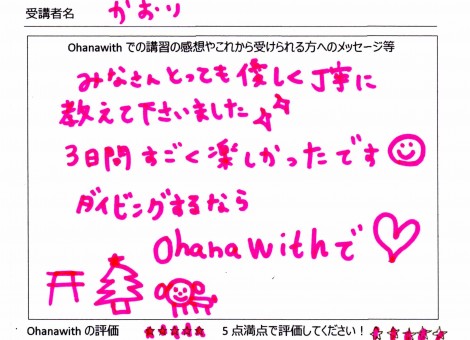 受講者名 かおり
Ohanawith での講習の感想やこれから受けられる方へのメッセージ等
みなさんとっても優しく丁寧に
教えて下さいました
3日間すごく楽しかったです
ダイビングするなら
Ohanawithで
Ohanawith の評価 ★★★★★ 5 点満点で評価してください！ ★★★★★